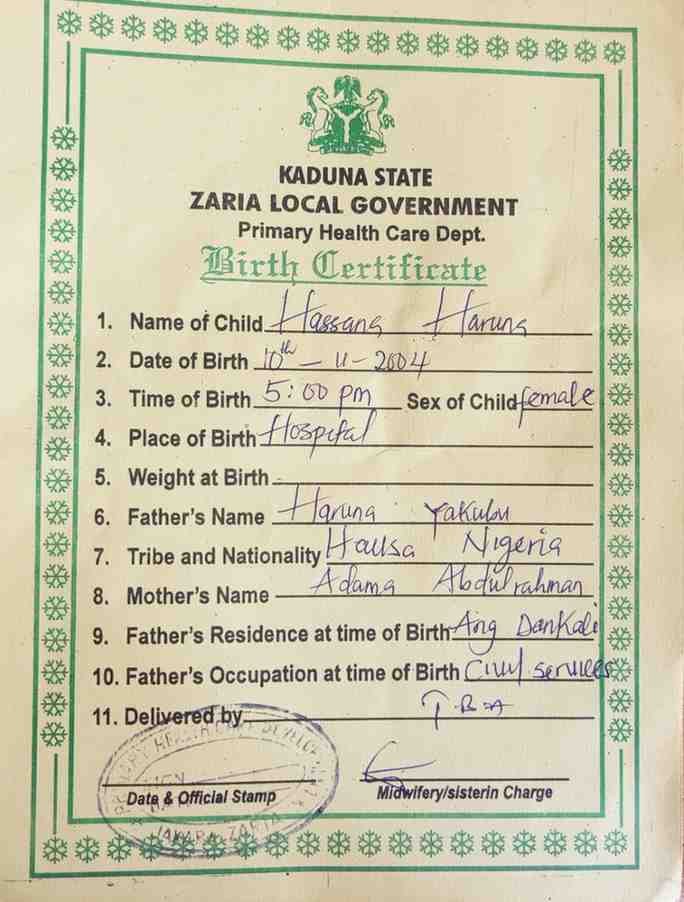 KADUNA STATE
ZARIA LOCAL GOVERNMENT
Primary Health Care Dept.
Birth Certificate
1. Name of Child Hassana Haruna
2. Date of Birth 10th - 11 - 2004
3. Time of Birth 5:00 pm Sex of Child female
4. Place of Birth Hospital
5. Weight at Birth
6. Father's Name Haruna Yakubu
7. Tribe and Nationality Hausa Nigeria
8. Mother's Name Adama Abdulrahman
9. Father's Residence at time of Birth Ang Dankali
10. Father's Occupation at time of Birth Civil services
11. Delivered by T.B.A
PRIMARY HEALTH CARE
ZARIA
Date & Official Stamp Midwifery/sisterin Charge